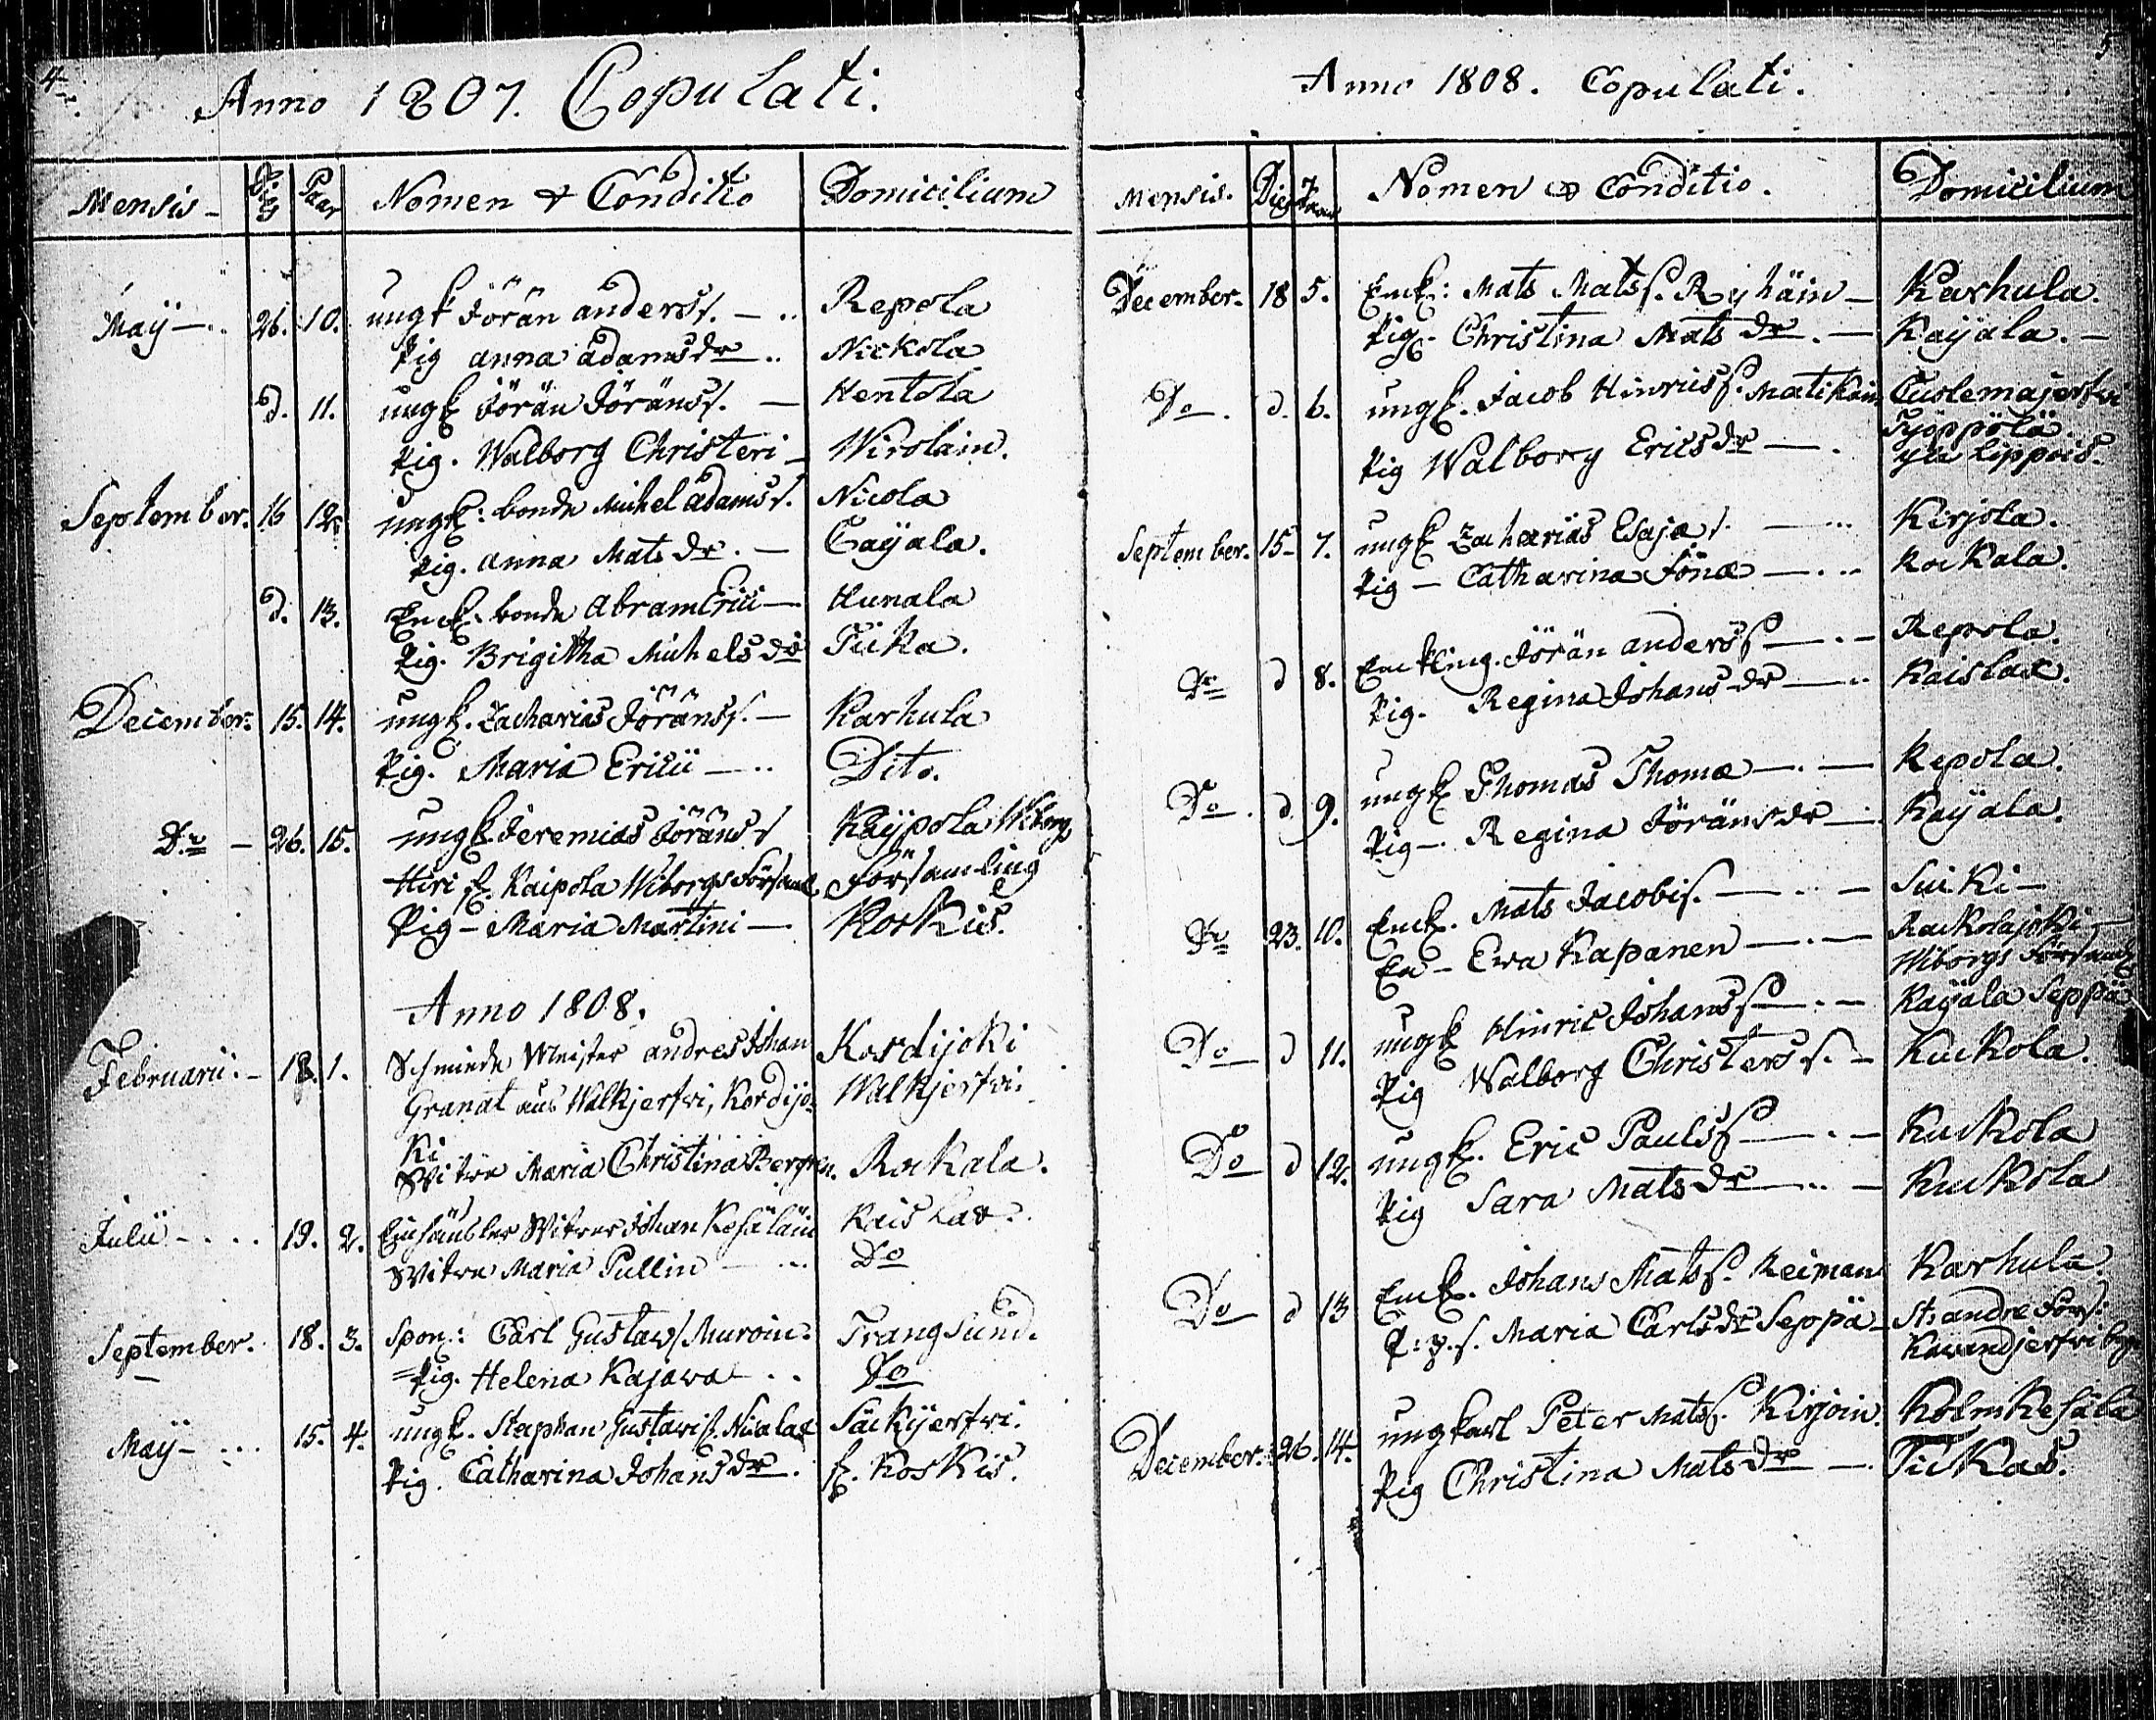 4.
Anno 1807. Copulati.
Mensis - Dies Paar Nomen & Conditio Domicilium
May - .. 26. 10. ungk Jörän anders s. - .. Repola
Pig anna adamsdr .. Nickola
d. 11. ungk Jörän Jöräns s. - Hentola
Pig. Walborg Christeri - Wirolain.
September. 16 12. ungk: bonde Michel adams s. Nicola
Pig. anna Mats dr. - Cayala.
d. 13. Enck. bonde Abram Erici - Hunala
Pig. Brigitha Michels dr Tiika.
December. 15. 14. ungk. Zacharias Jöräns s. - Karhula
Pig. Maria Ericii - .. Dito.
Do - 26. 15. ungk Jeremias Jöräns s Kaypola Wiborgs
Hiri f. Kaipola Wiborgs Församl Församling
Pig - Maria Martini - Koskis.
Anno 1808.
Februarii. - 18. 1. Schmiede Meister andres Johan Kordijoki
Granat aus Walkjerfwi, Kordijo= Walkjerfwi.
ki
Witwe Maria Christina Bergren. Rockala.
Julii - ... 19. 2. Einhäusler Witwer Johan Kesäläin Kaislax.
Witwe Maria Pullin - ... Do
September. 18. 3. Spon: Carl Gustaw s. Muroin. Trangsund.
Pig. Helena Kajawa - .. Do
May - ... 15. 4. ungk. Staphan Gustavi s. Nicalax Säckijerfwi.
Pig. Catharina Johans dr. f. Koskis.
5
Anno 1808. Copulati.
Mensis. Dies Paar Nomen & Conditio. Domicilium
December. 18 5. Enck: Mats Mats s. Ryhäin - Karhula.
Pig. Christina Mats dr. - Kayala. -
Do. d. 6. ungk. Jacob Hinrics s. Matikain Cuolemajerfwi
Työppölä.
Pig Walborg Erics dr - . yla Lippois.
September. 15- 7. ungk Zacharias Esajæ s. - ... Kirjola.
Pig - Catharina Jönæ - ... Rockala.
Do d 8. Enckling. Jörän anders s - . - Repola.
Pig. Regina Johans dr - .. Kaislax.
Do. d. 9. ungk Thomas Thomæ - . - Repola.
Pig - Regina Jöräns dr - . Kayala.
Do 23. 10. Enck. Mats Jacobi s. - .. - Suiki -
En - Ewa Kapanen - . - Rackolajoki,
Wiborgs Församl
Do d 11. ungk Hinric Johans s - . - Kayala Seppä
Pig Walborg Christers s. - Kuckola.
Do d 12. ungk. Eric Pauls s - . - Kuckola
Pig Sara Mats dr - .. - Kuckola
Do d 13 Enck. Johans Mats s. Reiman Karhula.
P. g. s. Maria Carls dr Seppä - St: andre Förs:
Kawandjerfwi by
December. 26. 14. ungkarl Peter Mats s. Kirjoin. Kolmkesäla
Pig Christina Mats dr - . Tiikas.